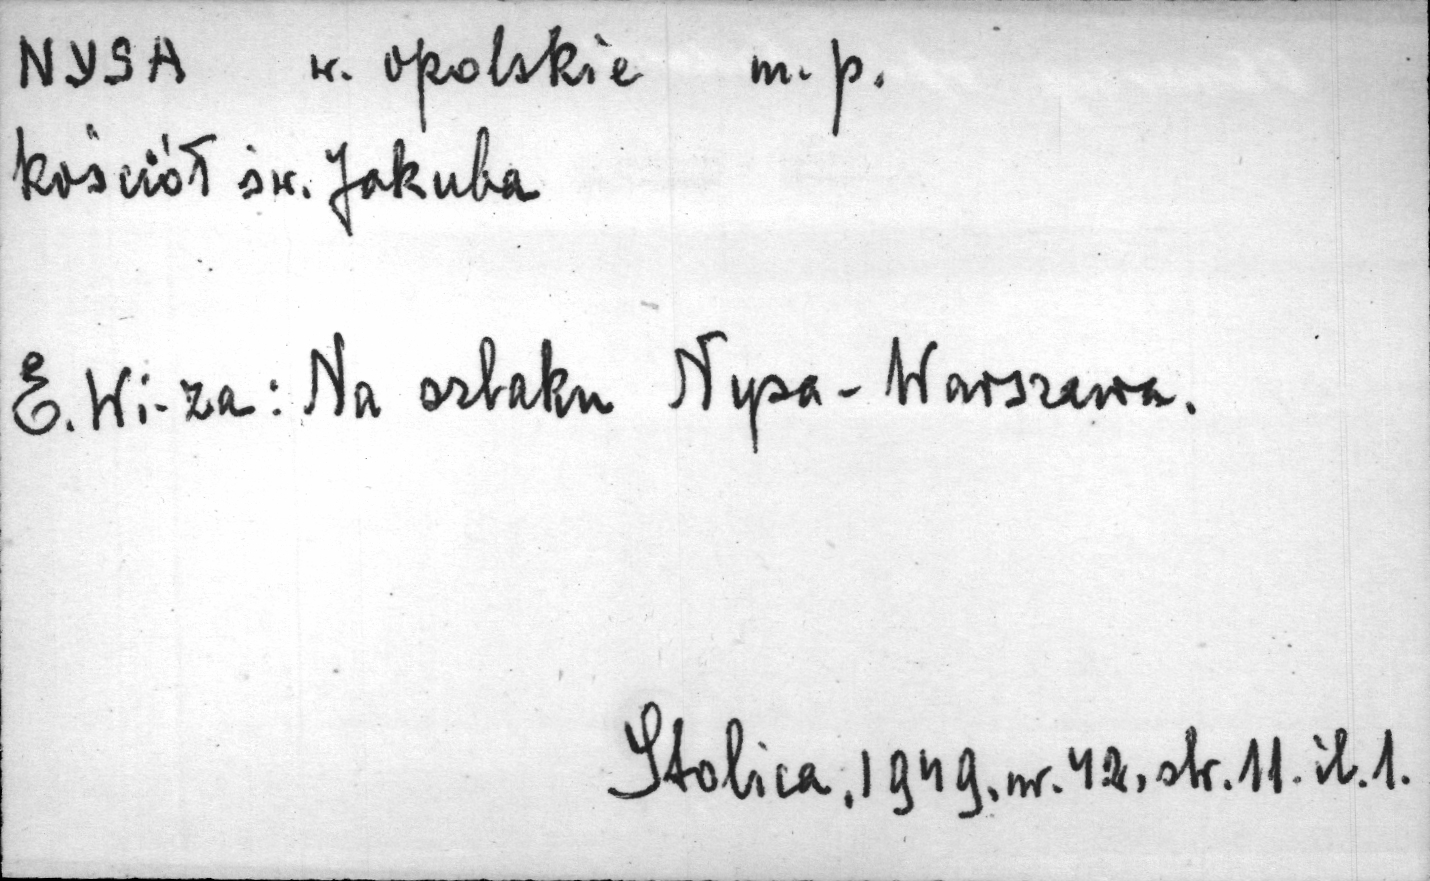 NYSA w. opolskie m. p.
kościół św. Jakuba
E. Wi-za: Na szlaku Nysa - Warszawa.
Stolica, 1949, nr. 42, str. 11. il. 1.